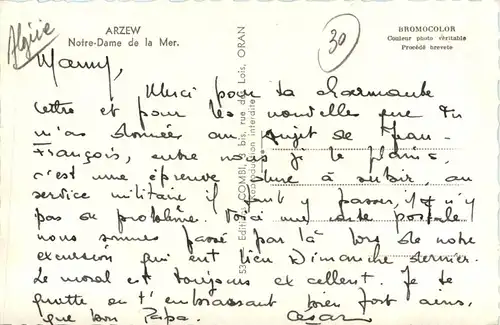 Algérie
ARZEW
Notre-Dame de la Mer.
30
BROMOCOLOR
Couleur photo véritable
Procédé breveté
Mamy,
Merci pour ta charmante
lettre et pour les nouvelles que tu
m'as données au sujet de Jean-
François, entre nous je le plains,
c'est une épreuve dure à subir, au
service militaire il faut y passer, il n'y
pas de problème. Voici une carte postale
nous sommes passé par là lors de notre
excursion qui eut lieu Dimanche dernier.
Le moral est toujours excellent. Je te
quitte en t'embrassant bien fort ainsi
que bon Papa.
César
Editions COMBIER, bis, rue des Lois, ORAN
Reproduction interdite